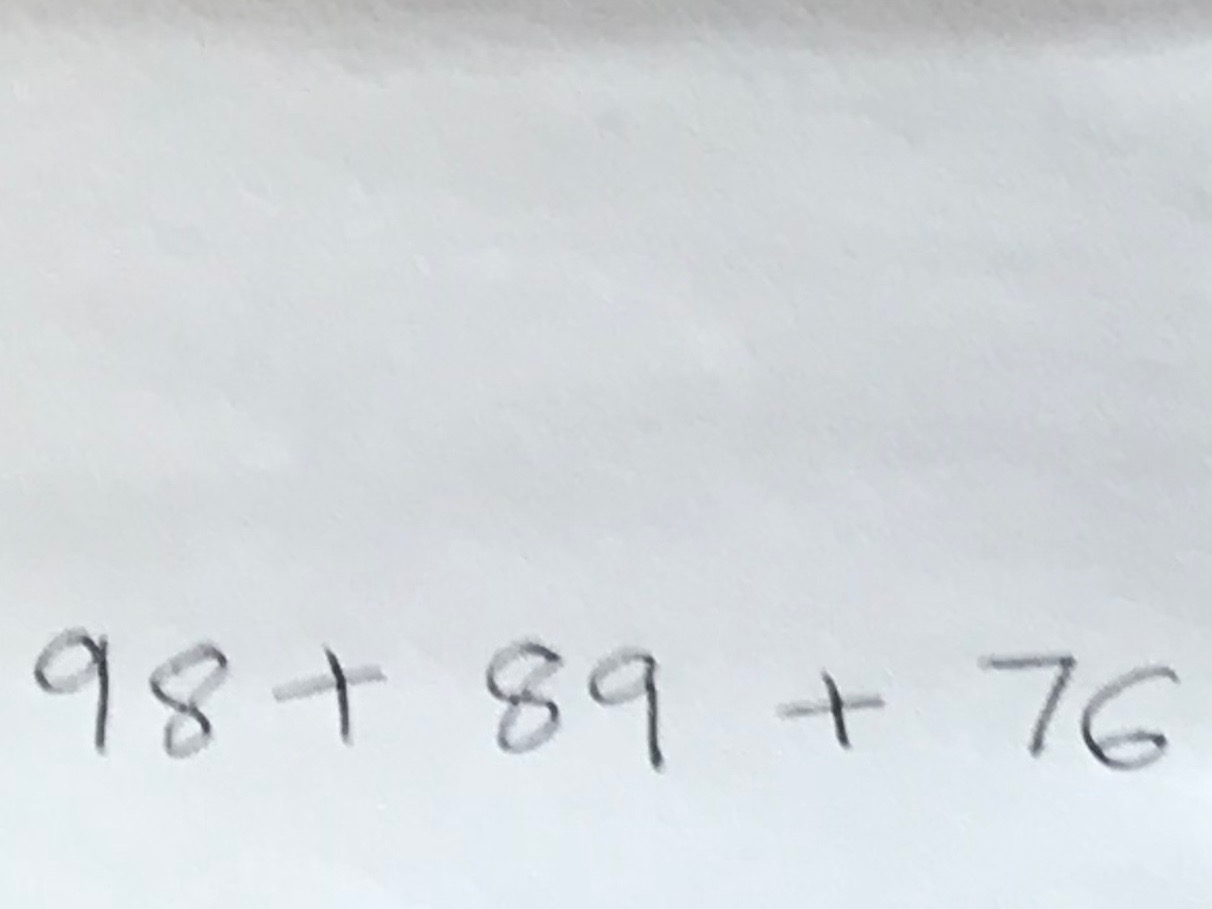 98 + 89 + 76